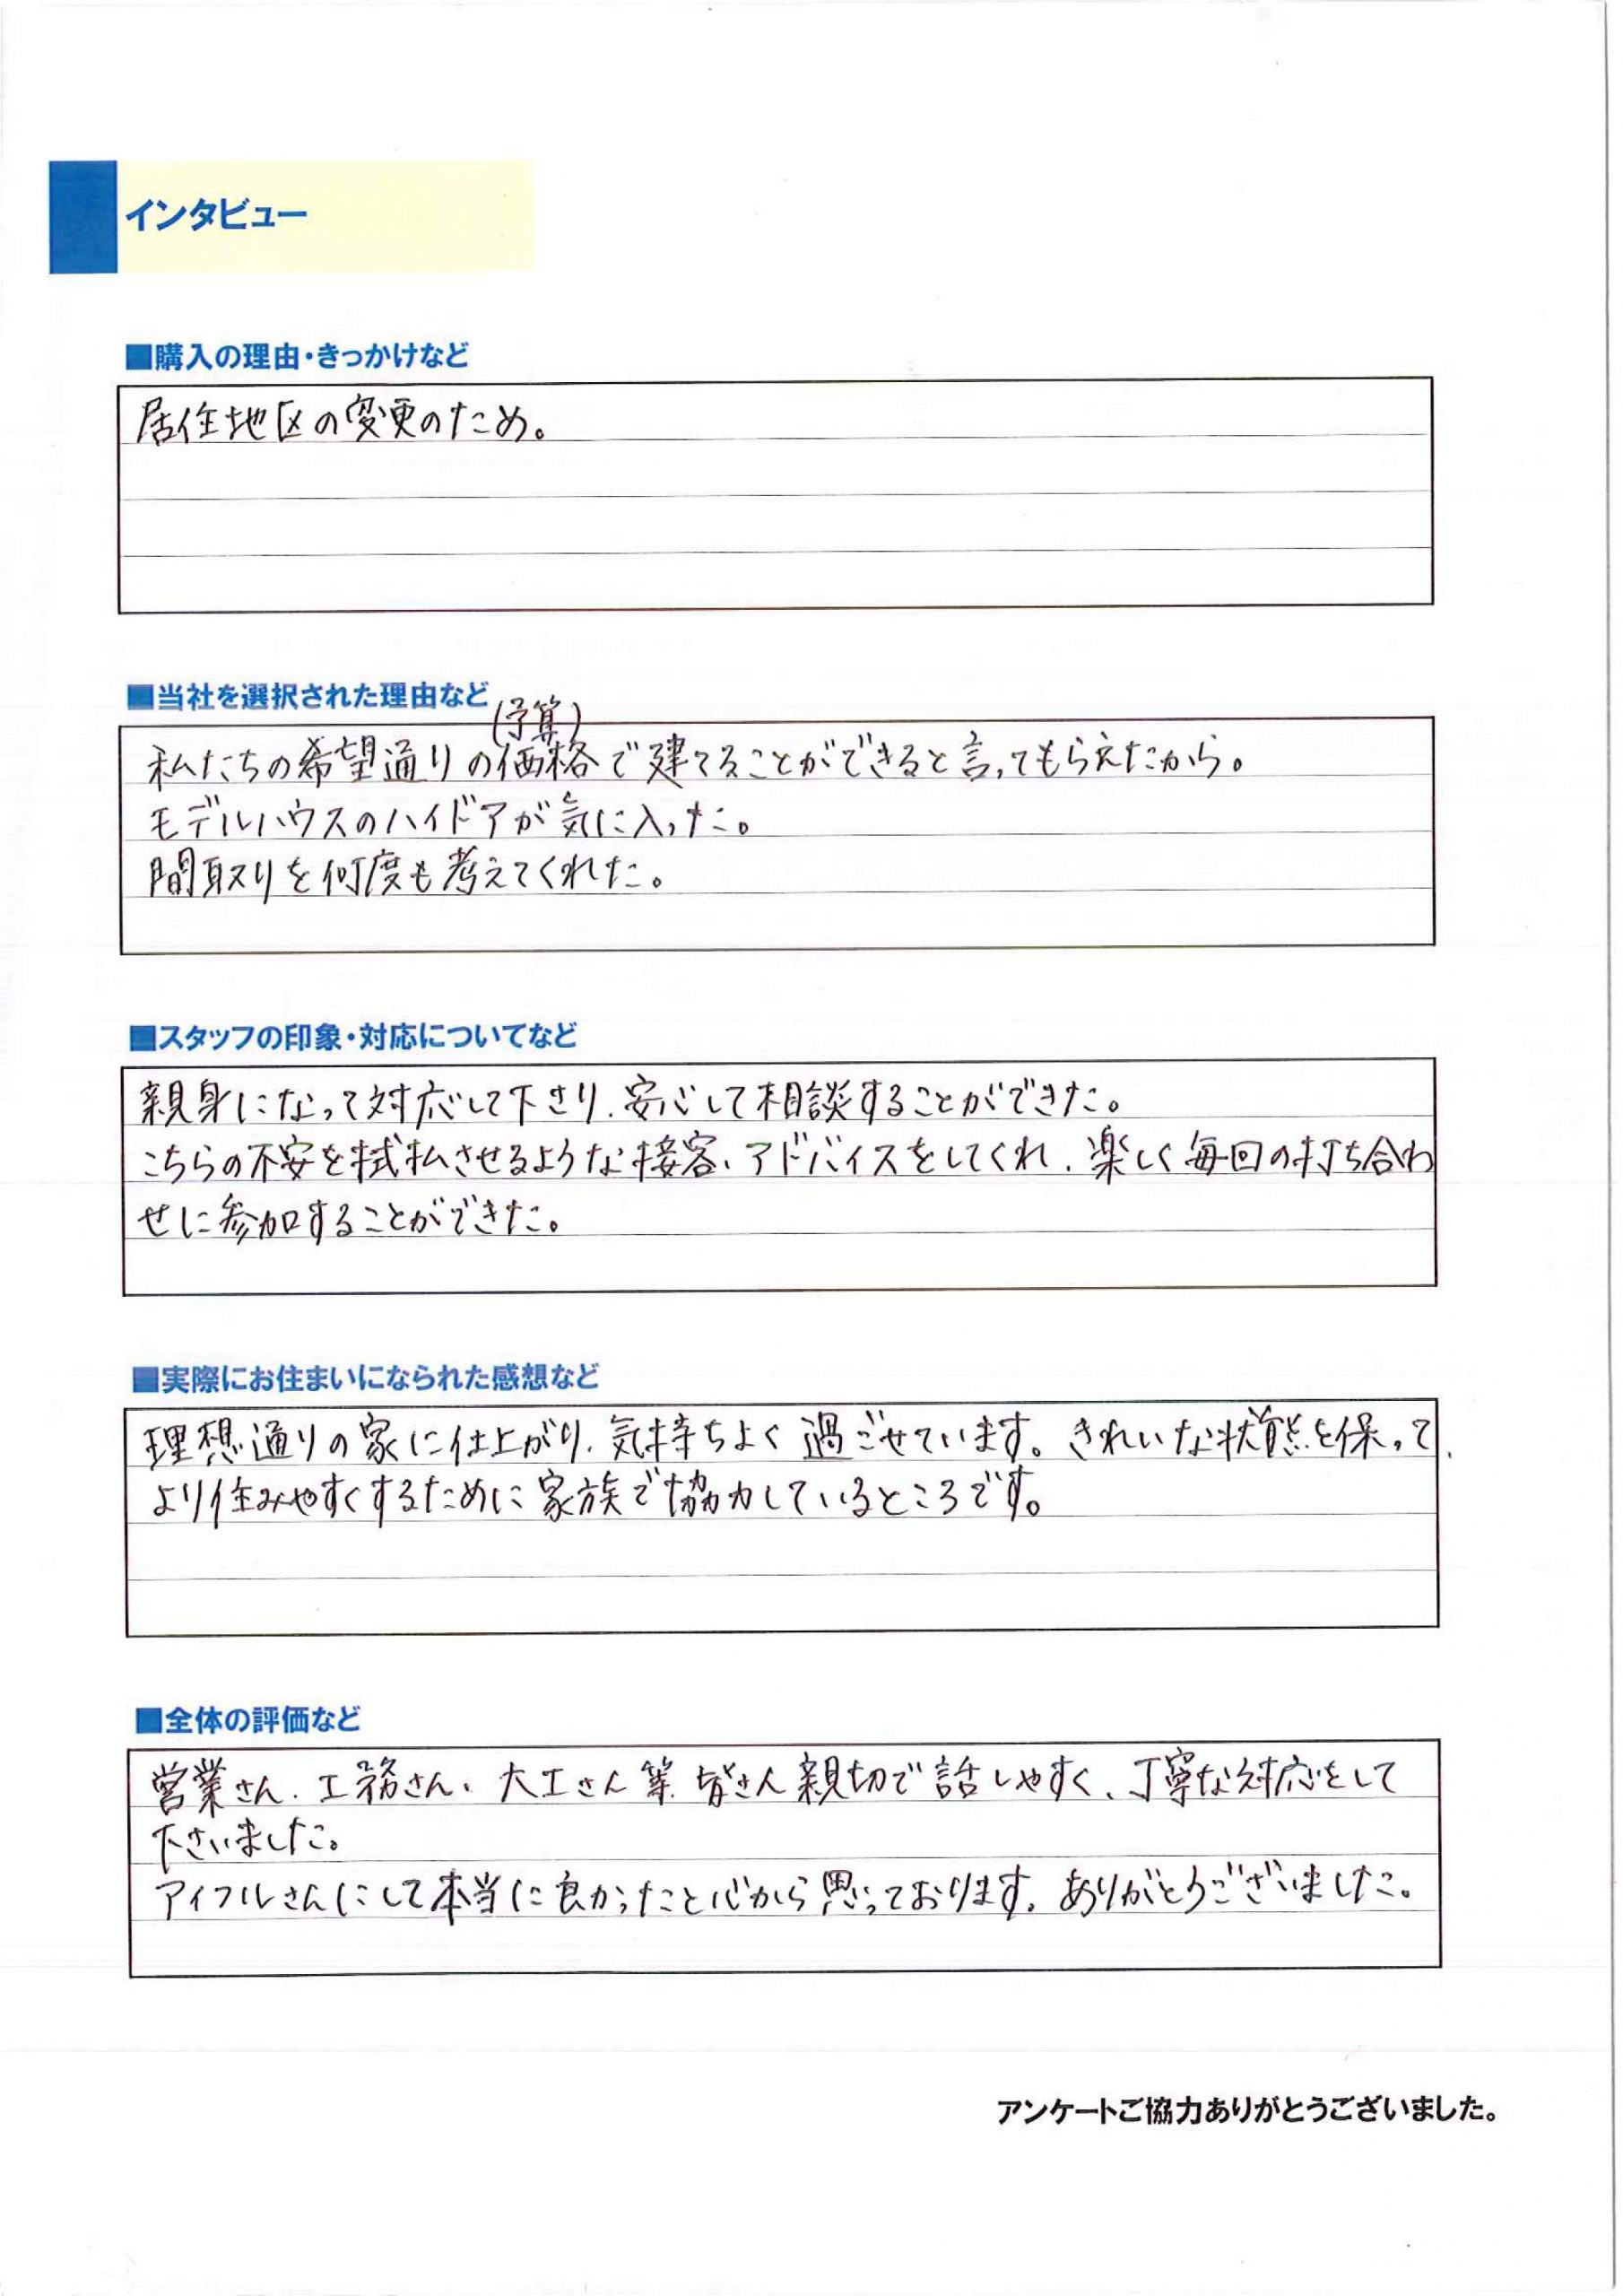 インタビュー
■購入の理由・きっかけなど
居住地区の変更のため。
■当社を選択された理由など
(予算)
私たちの希望通りの価格で建てることができると言ってもらえたから。
モデルハウスのハイドアが気に入った。
間取りを何度も考えてくれた。
■スタッフの印象・対応についてなど
親身になって対応して下さり、安心して相談することができた。
こちらの不安を拭払させるような接客、アドバイスをしてくれ、楽しく毎回の打ち合わ
せに参加することができた。
■実際にお住まいになられた感想など
理想通りの家に仕上がり、気持ちよく過ごせています。きれいな状態を保って、
より住みやすくするために家族で協力しているところです。
■全体の評価など
営業さん、工務さん、大工さん等、皆さん親切で話しやすく、丁寧な対応をして
下さいました。
アイフルさんにして本当に良かったと心から思っております。ありがとうございました。
アンケートご協力ありがとうございました。